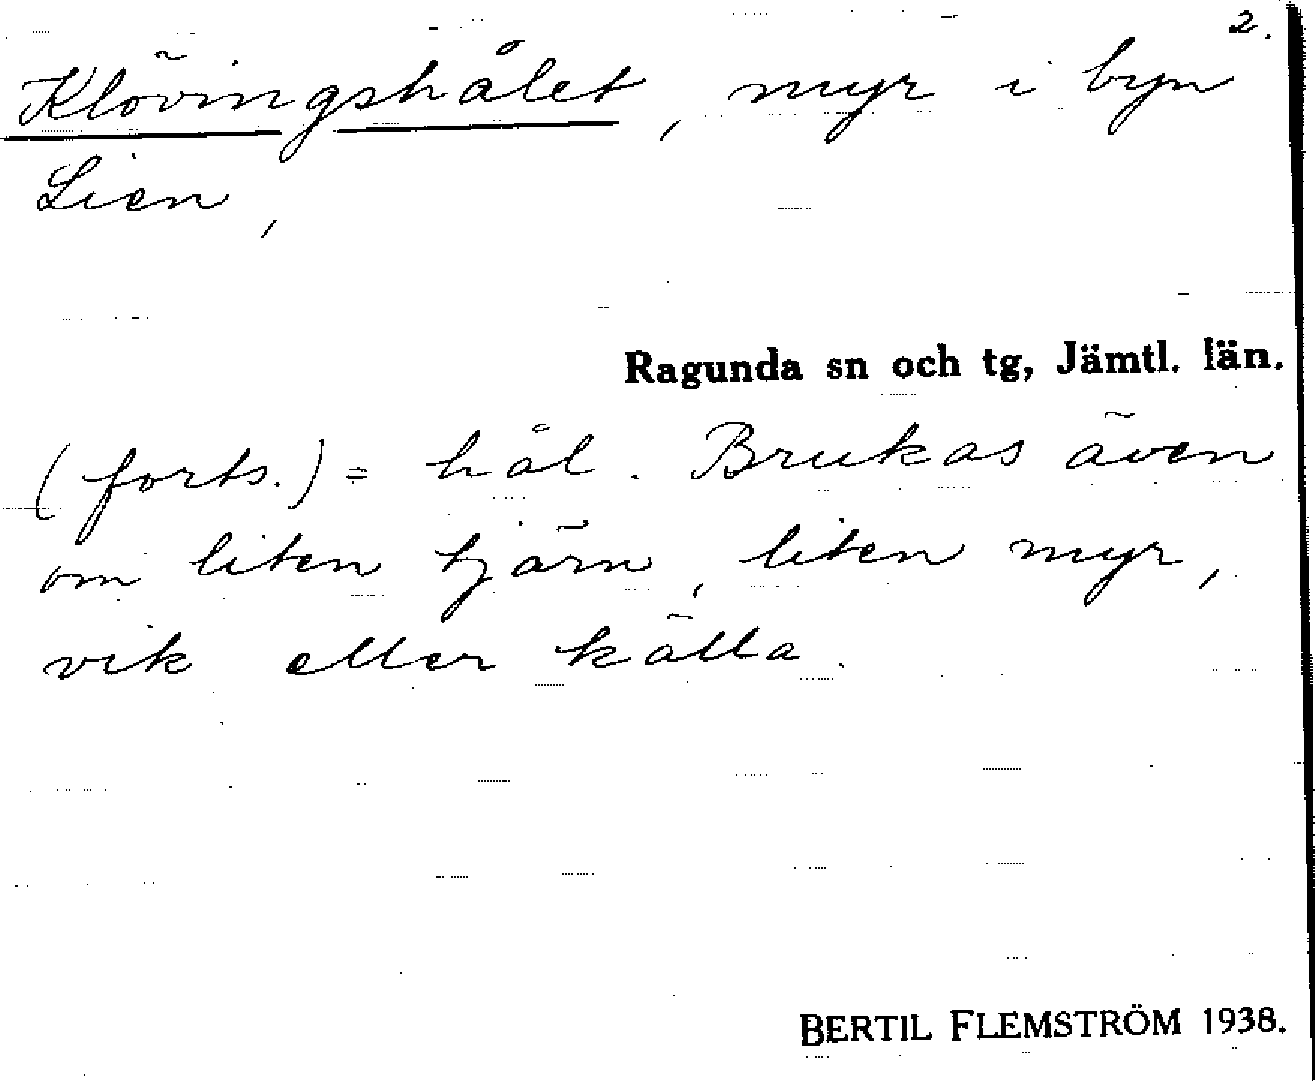 2.
Klövingshålet, myr i byn
Lien,
Ragunda sn och tg, Jämtl. län.
(forts.) = hål. Brukas även
om liten tjärn, liten myr,
vik eller källa.
BERTIL FLEMSTRÖM 1938.